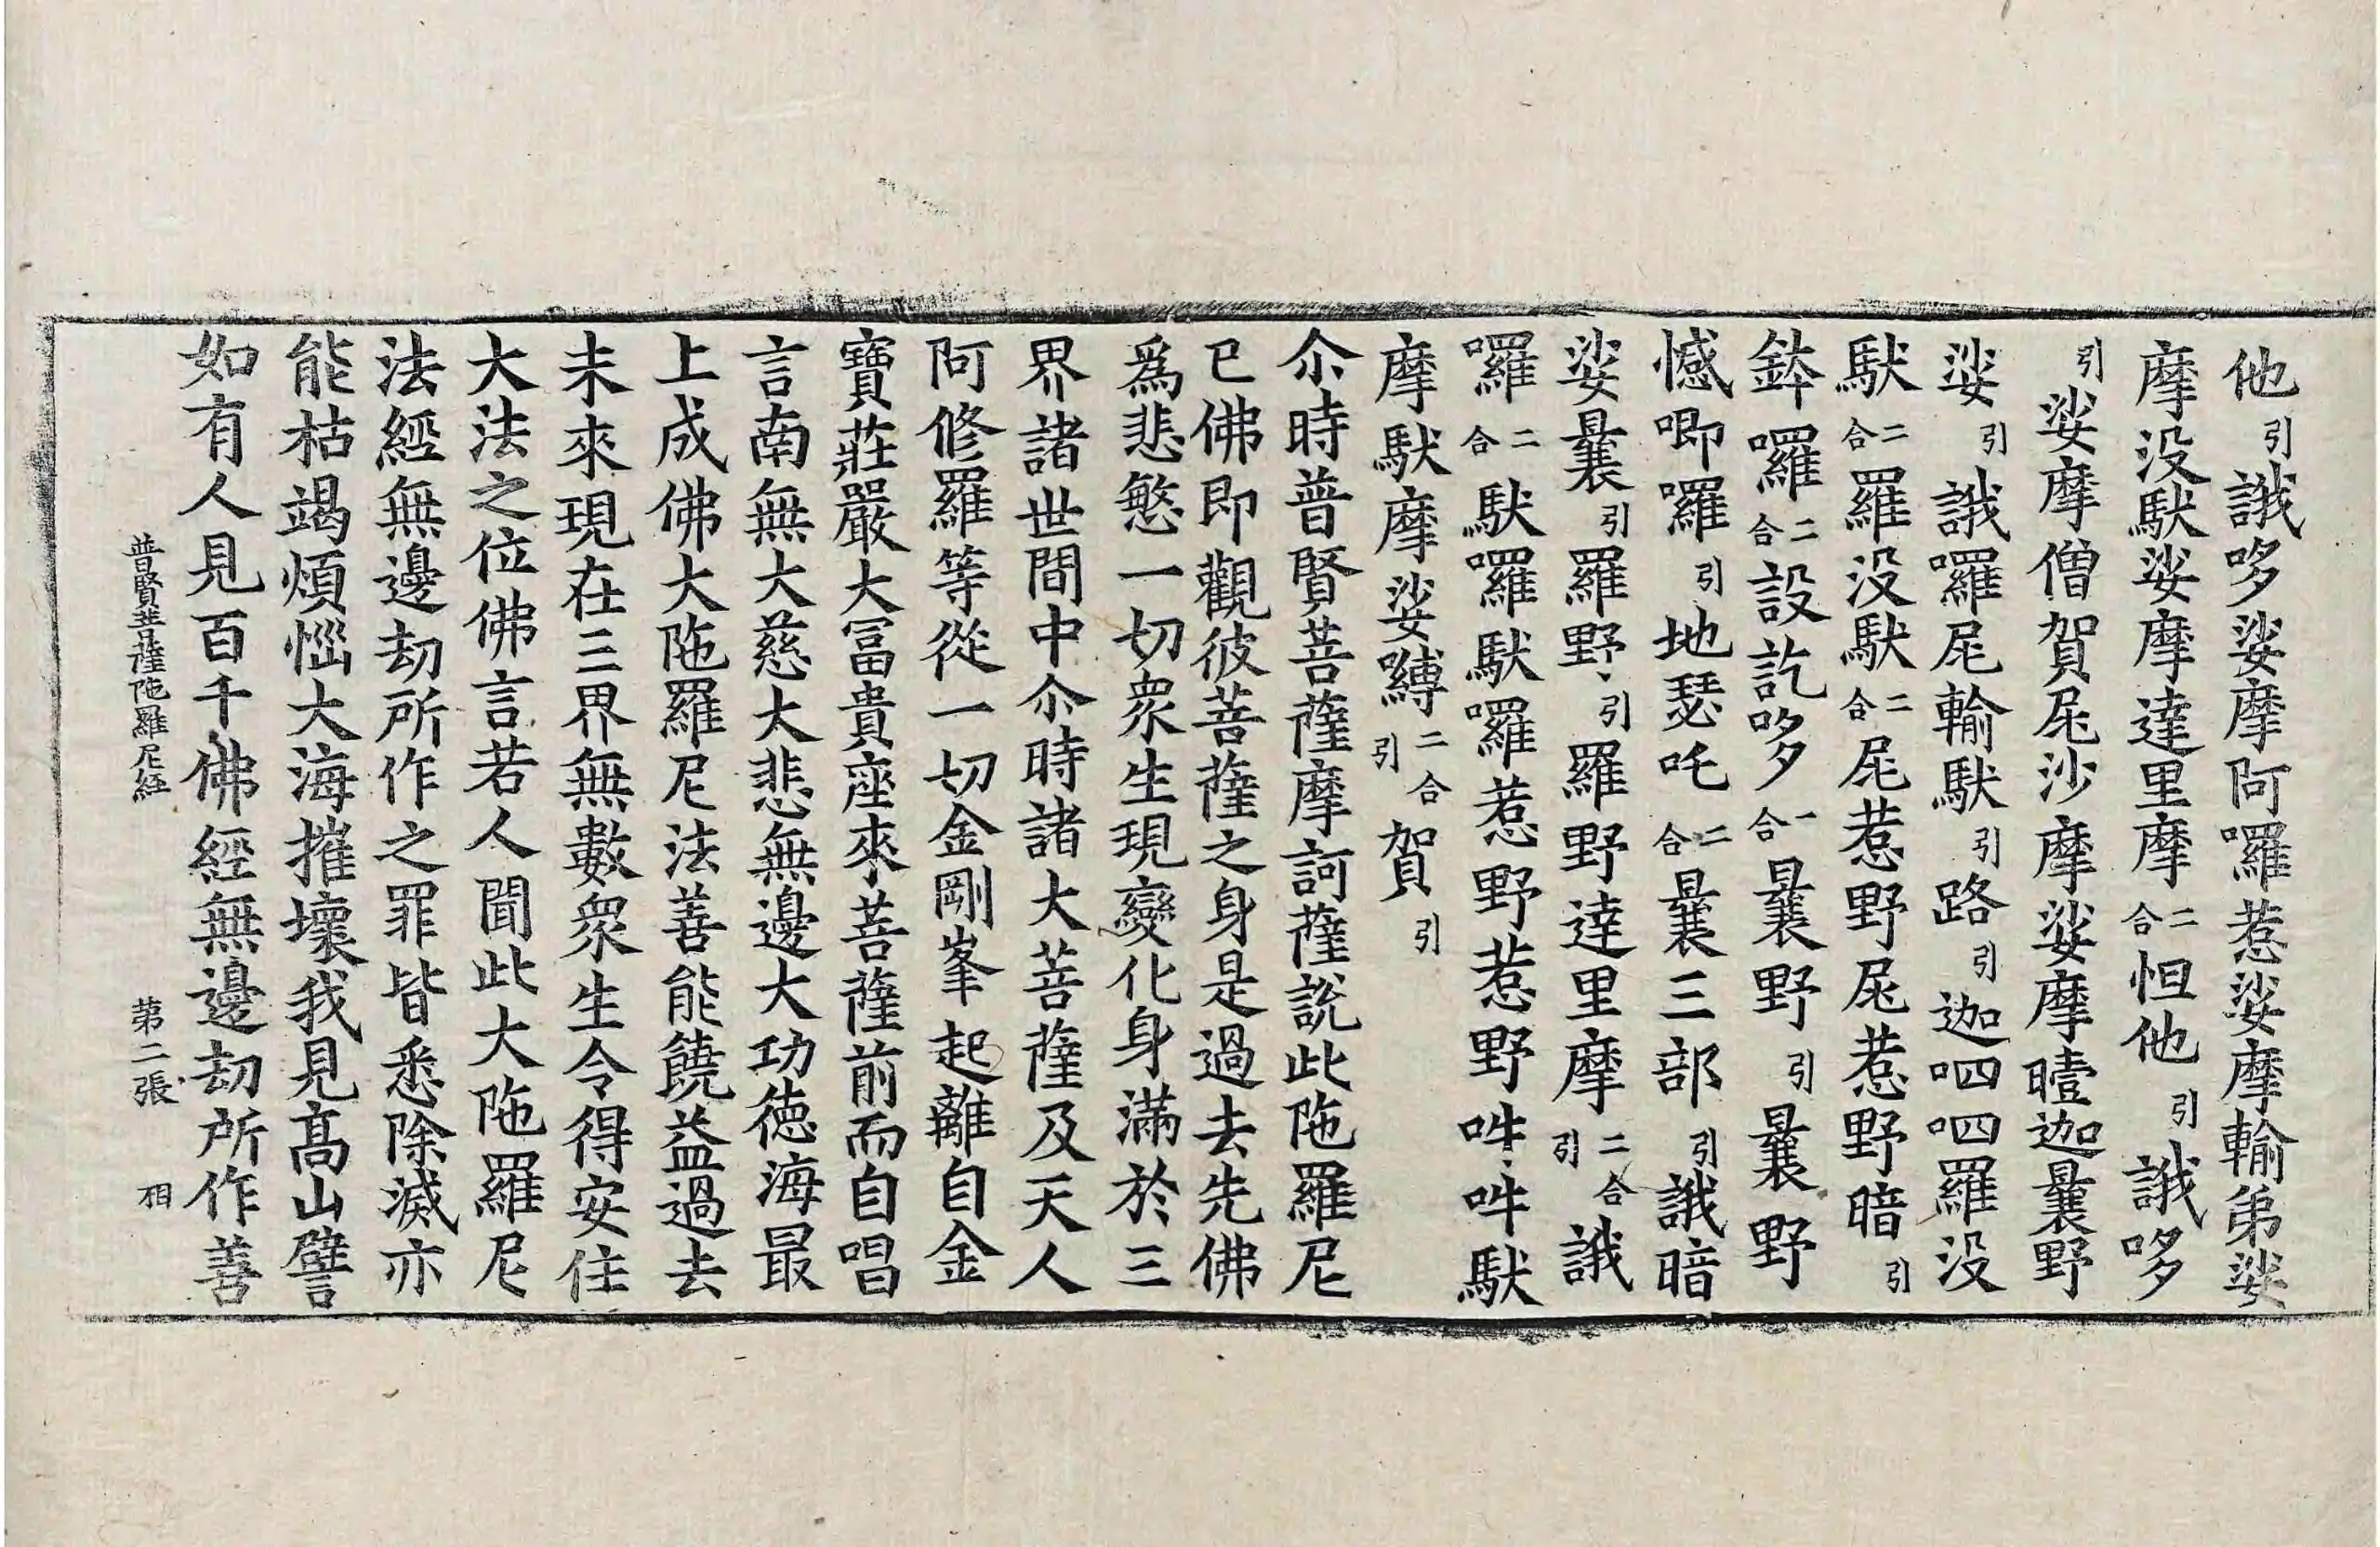 他引誐哆娑摩阿囉惹娑摩輸弟娑
摩没馱娑摩達里摩二合怛他引誐哆
引娑摩僧賀㞑沙摩娑摩曀迦曩野
娑引誐囉㞑輸馱引路引迦呬呬羅没
馱二合羅没馱二合㞑惹野㞑惹野暗引
鉢囉二合設訖哆一合曩野引曩野
憾唧囉引地瑟吒二合曩三部引誐暗
娑曩引羅野引羅野達里摩二合引誐
囉二合馱囉馱囉惹野惹野吽吽馱
摩馱摩娑嚩二合引賀引
尒時普賢菩薩摩訶薩說此陁羅尼
已佛即觀彼菩薩之身是過去先佛
爲悲慜一切衆生現變化身滿於三
界諸世間中尒時諸大菩薩及天人
阿修羅等從一切金剛峯起離自金
寶莊嚴大冨貴座來菩薩前而自唱
言南無大慈大悲無邊大功徳海最
上成佛大陁羅尼法善能饒益過去
未來現在三界無數衆生令得安住
大法之位佛言若人聞此大陁羅尼
法經無邊劫所作之罪皆悉除滅亦
能枯竭煩惱大海摧壞我見髙山譬
如有人見百千佛經無邊劫所作善
普賢菩薩陁羅尼経　第二張　相